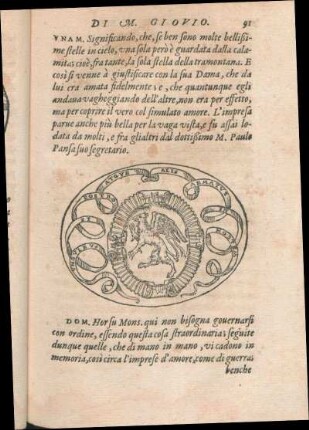 DI M. GIOVIO. 91
VNAM. Significando, che, se ben sono molte bellissi-
me stelle in cielo, vna sola però è guardata dalla cala-
mita: cioè, fra tante, la sola stella della tramontana. E
così si venne à giustificare con la sua Dama, che da
lui era amata fidelmente: e, che quantunque egli
andaua vagheggiando dell'altre, non era per effetto,
ma per coprire il vero col simulato amore. L'impresa
parue anche più bella per la vaga vista, e fu assai lo-
data da molti, e fra gli altri dal dottissimo M. Paulo
Pansa suo segretario.
DOM. Hor su Mons. qui non bisogna gouernarsi
con ordine, essendo questa cosa straordinaria; seguite
dunque quelle, che di mano in mano, vi cadono in
memoria, così circa l'imprese d'amore, come di guerra:
benche